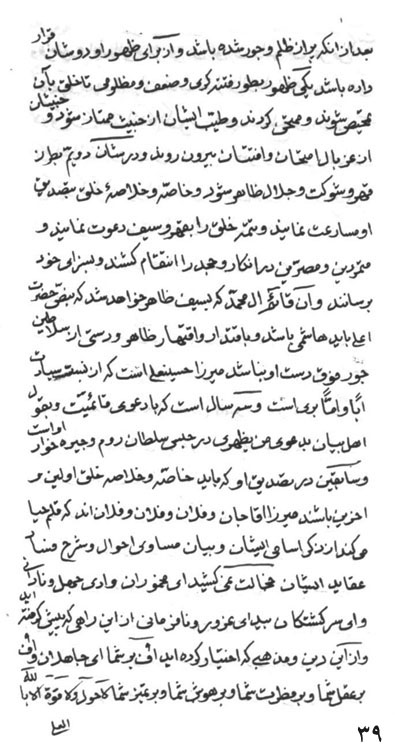 بعد از انکه پر از ظلم و جور شده باشد و از برای ظهور او دو شان قرار
داده باشد یکی ظهور بطور فتنه کری و ضعف و مظلومی تا خلق بآن
ممتحن شوند و ممحص کردند و طیب ایشان از خبیث ممتاز شود و خبیثان
از غربال امتحان و افتتان بیرون روند و در شان دویم بطراز
قهر و شوکت و جلال ظاهر شود و خاصّه و خلاصهٔ خلق بتصدیق
او مسارعت نمایند و تتمّهٔ خلق را بقهر و سیف دعوت نمایند و
متمردین و مصرّین در انکار و جحد را انتقام کشند و بسزای خود
برسانند و آن قائم آل محمّد که بسیف ظاهر خواهد شد که بنصّ حضرت
اعلی باید هاشمی باشد و باقتدار و اقتهار ظاهر و دستی از سلاطین
جور فوق دست او نباشد میرزا حسینعلی است که از نسبت سیادت
اباً و امّاً بری است و سه سال است که با دعوی قائمیّت و بقول
اهل بیان بدعوی من یظهری در حبس سلطان روم و جیره خوار او است
و سابقین در تصدیق او که باید خاصّه و خلاصه خلق اولین و
اخرین باشند میرزا اقا جان و فلان و فلان و فلان اند که قلم حیا
می کند از ذکر اسامی ایشان و بیان مساوی احوال و شرح فساد
عقاید ایشان خجالت نمی کشید ای مخموران وادی جهل و نادانی
و ای سرکشتکان بیدای غرور و نافرمانی از این راهی که پیش کرفته اید
و از این دین و مذهبی که اختیار کرده اید افّ بر شما ای جاهلان و افّ
بر عقل شما و بر فطرت شما و بر هوش شما و بر تمیز شما لا حول و لا قوّة الّا بالله
العلی
۳۹